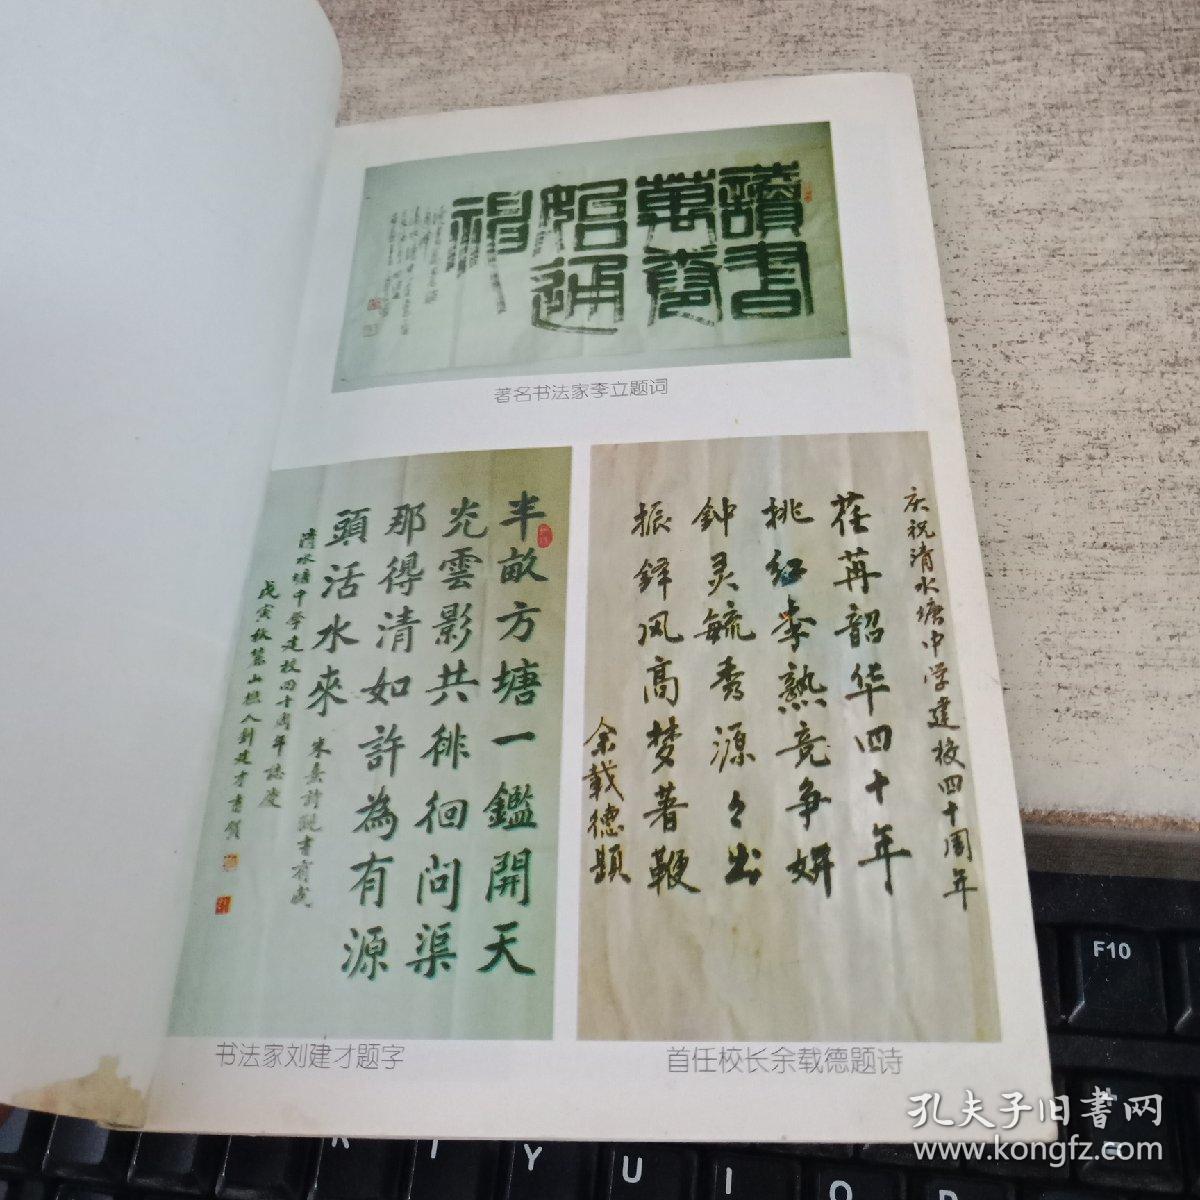 讀書
萬卷
始通
神
著名书法家李立题词
半畝方塘一鑑開天
光雲影共徘徊問渠
那得清如許為有源
頭活水來
朱熹詩
清水塘中學建校四十周年誌慶
戊寅秋麓山
劉建才書賀
书法家刘建才题字
庆祝清水塘中学建校四十周年
荏苒韶华四十年
桃红李熟竞争妍
钟灵毓秀源々出
振铎风高梦著鞭
余载德题
首任校长余载德题诗
F10
R
T
Y
U
I
O
孔夫子旧書网
www.kongfz.com